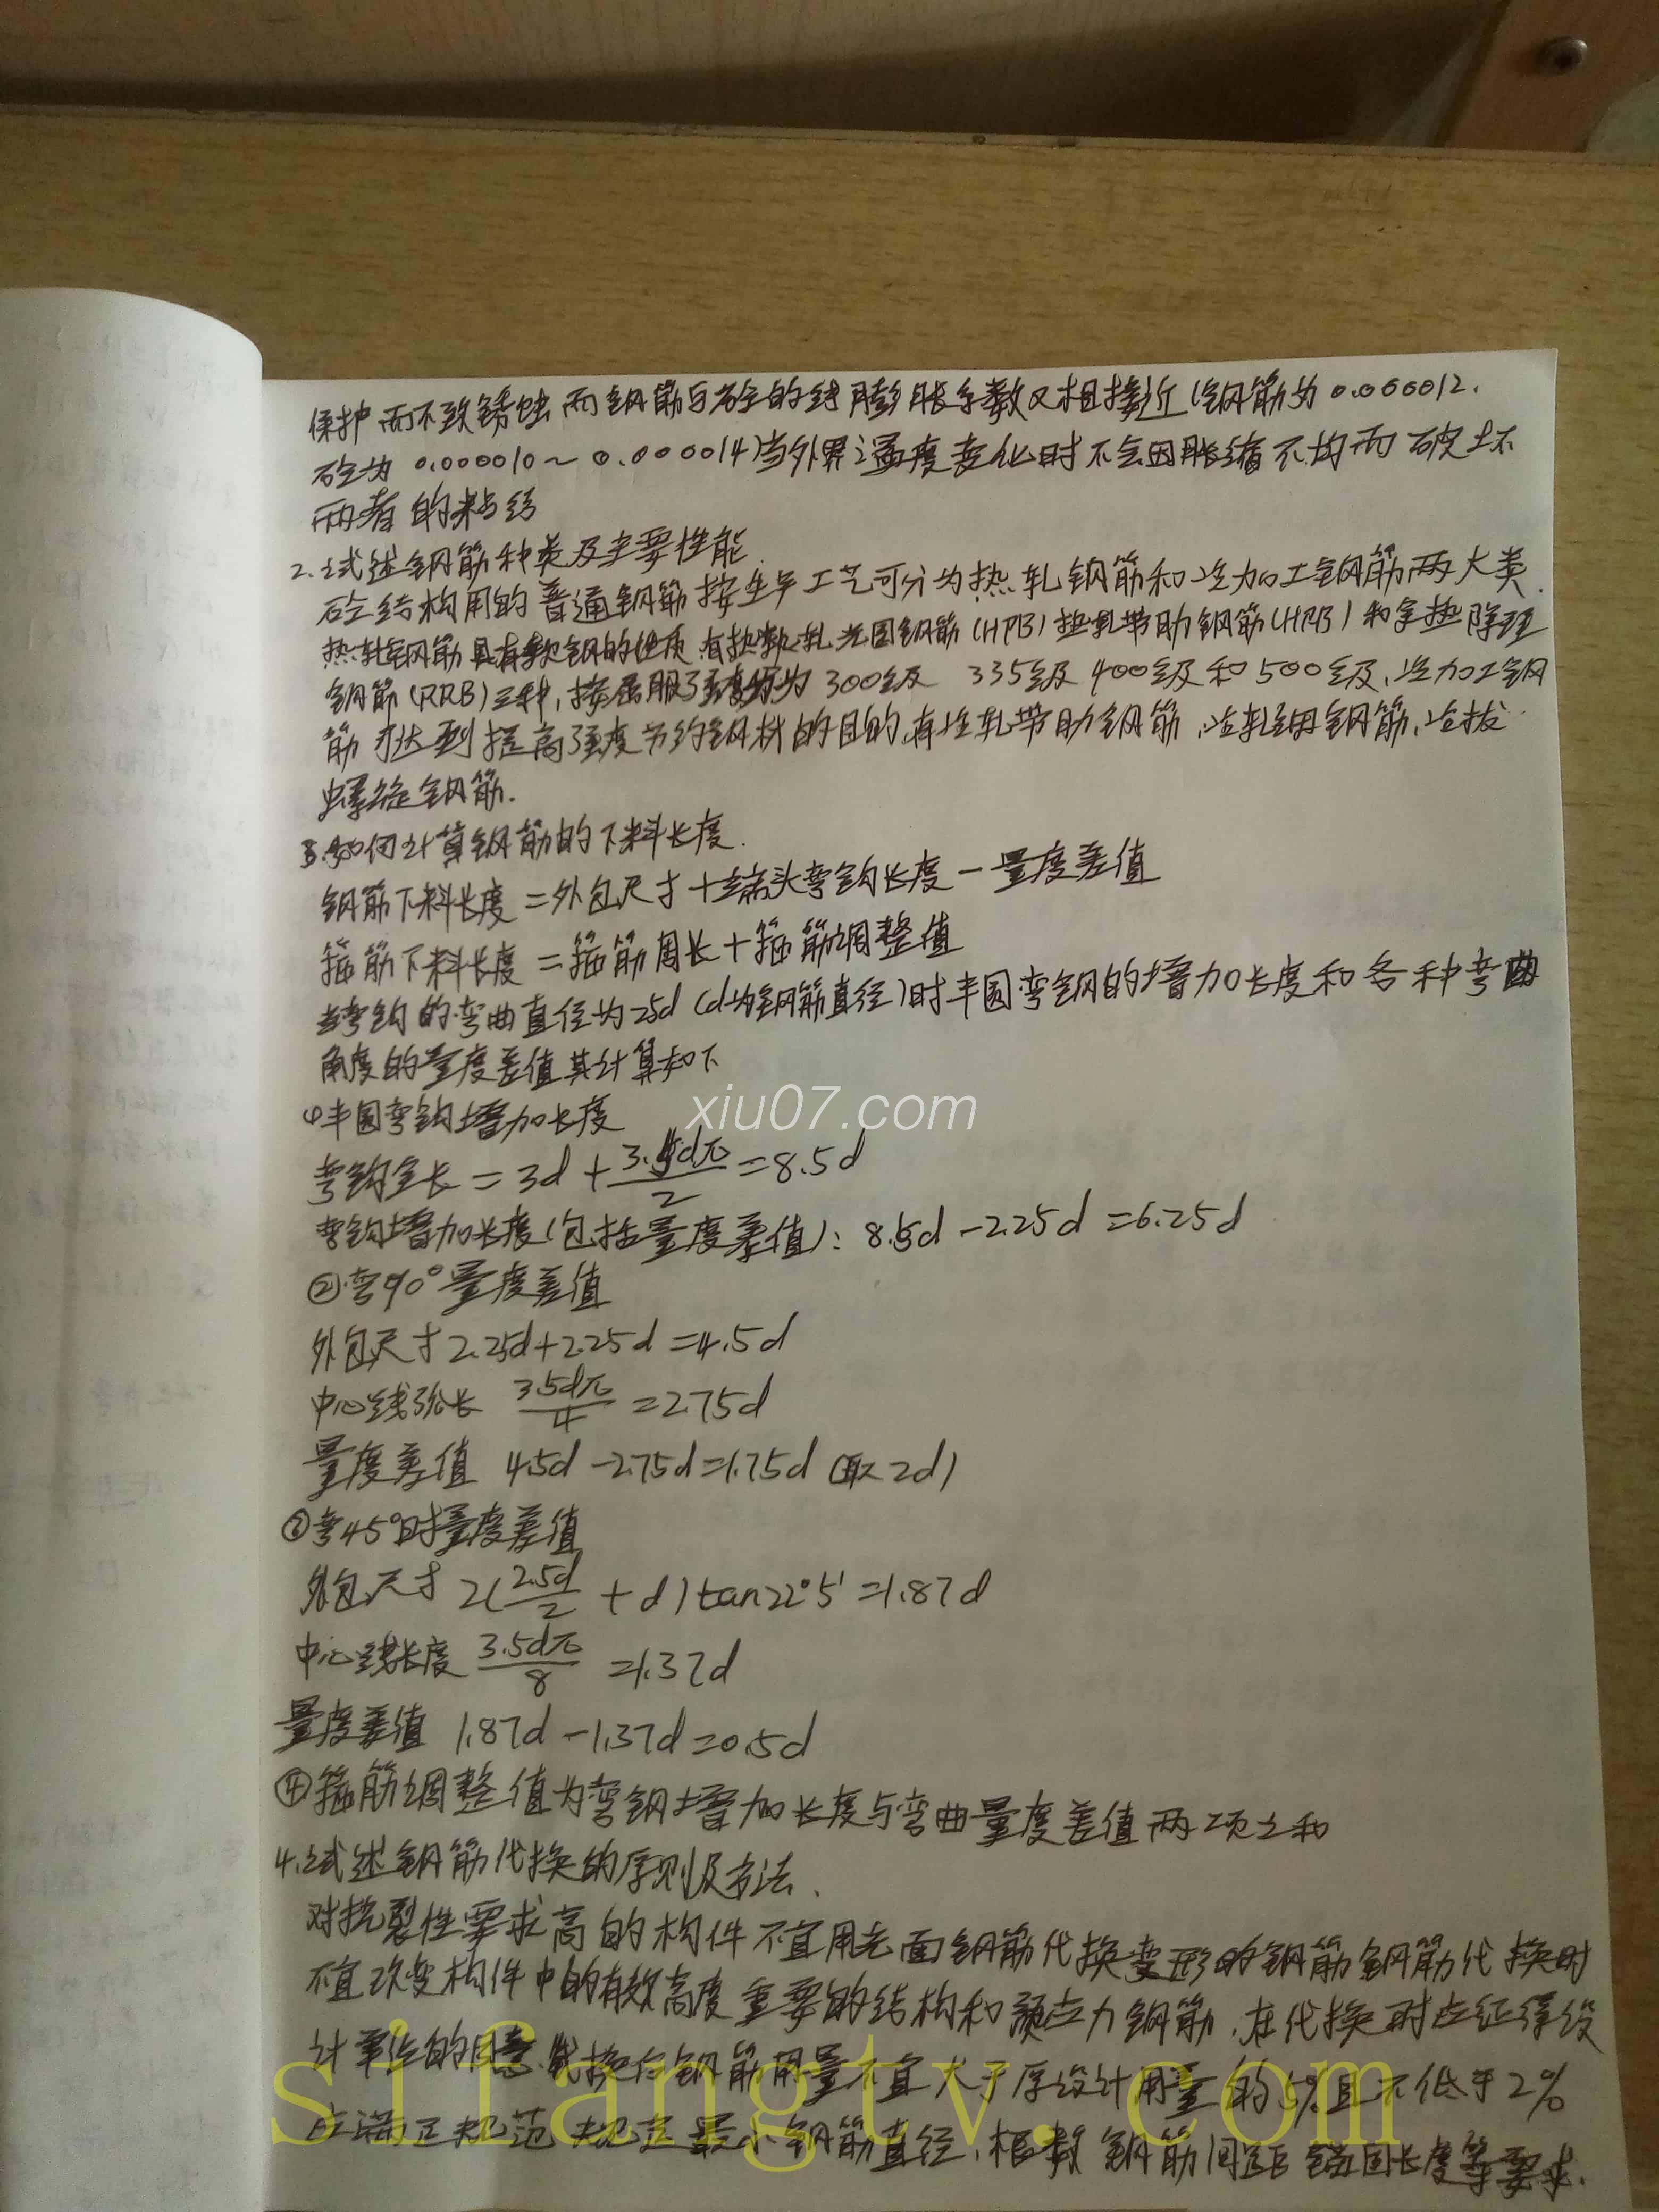 保护而不致锈蚀而钢筋与砼的线膨胀系数又相接近(钢筋为0.000012.
砼为 0.000010～0.000014)当外界温度变化时不会因胀缩不均而破坏
两者的粘结
2.试述钢筋种类及主要性能.
砼结构用的普通钢筋按生产工艺可分为热轧钢筋和冷加工钢筋两大类.
热轧钢筋具有软钢的性质.有热轧光圆钢筋(HPB)热轧带肋钢筋(HRB)和余热除理
钢筋(RRB)三种,按屈服强度分为300级 335级 400级和500级.冷加工钢
筋才达到提高强度节约钢材的目的,有冷轧带肋钢筋.冷轧扭钢筋.冷拔
螺旋钢筋.
3.如何计算钢筋的下料长度.
钢筋下料长度=外包尺寸+端头弯钩长度-量度差值
箍筋下料长度=箍筋周长+箍筋调整值
当弯钩的弯曲直径为25d(d为钢筋直径)时半圆弯钢的增加长度和各种弯曲
角度的量度差值其计算如下
xiu07.com
①半圆弯钩增加长度
弯钩全长=3d+3.5dπ/2=8.5d
弯钩增加长度(包括量度差值):8.5d-2.25d=6.25d
②弯90°量度差值
外包尺寸2.25d+2.25d=4.5d
中心线弧长 3.5dπ/4=2.75d
量度差值 4.5d-2.75d=1.75d(取2d)
③弯45°时量度差值
外包尺寸 2(2.5d/2+d)tan22°5′=1.87d
中心线长度 3.5dπ/8=1.37d
量度差值 1.87d-1.37d=0.5d
④箍筋调整值为弯钢增加长度与弯曲量度差值两项之和
4.试述钢筋代换的原则及方法.
对抗裂性要求高的构件不宜用光面钢筋代换变形的钢筋钢筋代换时
不宜改变构件中的有效高度重要的结构和预应力钢筋.在代换时应征得设
计单位的同意.代换后钢筋用量不宜大于原设计用量的5%且不低于2%
sifangtv.com
应满足规范规定最小钢筋直径.根数 钢筋间距 锚固长度等要求.